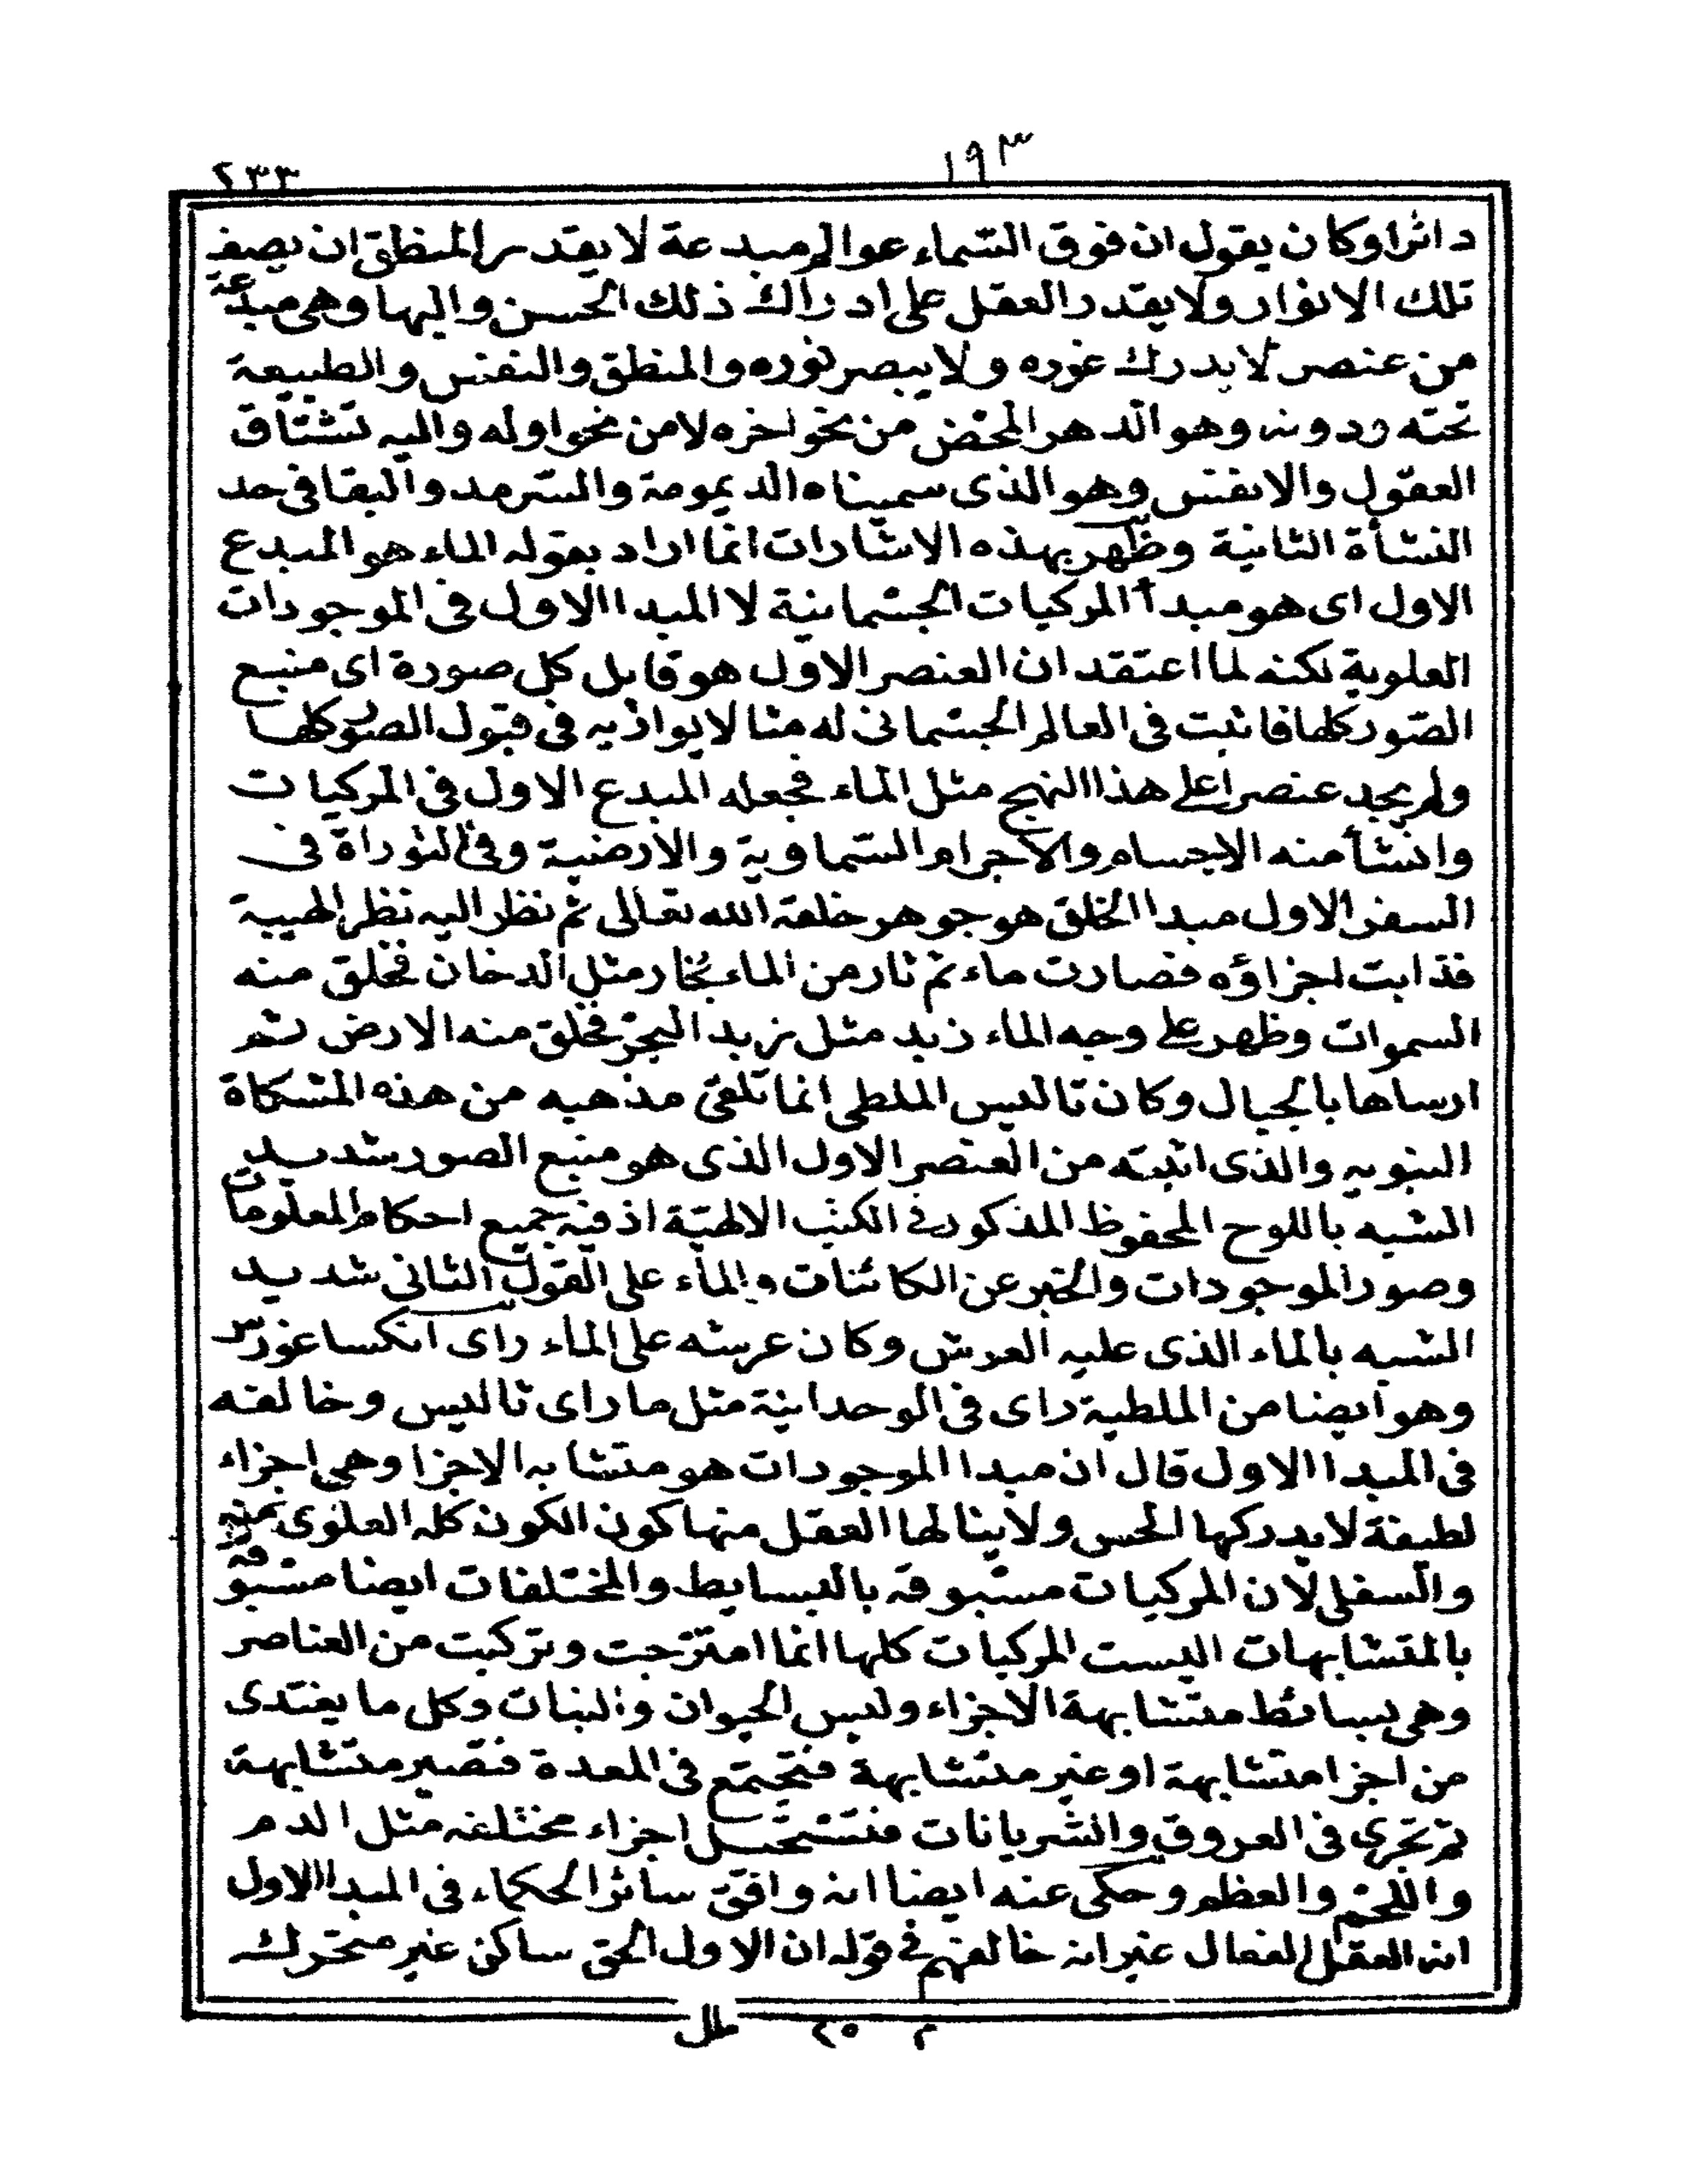 ١٩٣
٢٣٣
داثرا وكان يقول ان فوق السماء عوالم مبدعة لا يقدر المنطق ان يصف
تلك الانوار ولا يقدر العقل على ادراك ذلك الحسن والبها وهى مبدعة
من عنصر لا يدرك غوره ولا يبصر نوره والمنطق والنفس والطبيعة
تحته ودونه وهو الدهر المحض من نحو اخره لا من نحو اوله واليه تشتاق
العقول والانفس وهو الذى سميناه الديمومة والسرمد والبقا فى حد
النشأة الثانية وظهر بهذه الاشارات انما اراد بقوله الماء هو المبدع
الاول اى هو مبدأ المركبات الجسمانية لا المبدا الاول فى الموجودات
العلوية لكنه لما اعتقد ان العنصر الاول هو قابل كل صورة اى منبع
الصور كلها فاثبت فى العالم الجسمانى له مثالا يوازيه فى قبول الصور كلها
ولم يجد عنصرا على هذا النهج مثل الماء فجعله المبدع الاول فى المركبات
وانشأ منه الاجسام والاجرام السماوية والارضية وفى التوراة فى
السفر الاول مبدا الخلق هو جوهر خلقه الله تعالى ثم نظر اليه نظر الهيبة
فذابت اجزاؤه فصارت ماء ثم ثار من الماء بخار مثل الدخان فخلق منه
السموات وظهر على وجه الماء زبد مثل زبد البحر فخلق منه الارض ثم
ارساها بالجبال وكان تاليس الملطى انما تلقى مذهبه من هذه المشكاة
النبويه والذى اثبته من العنصر الاول الذى هو منبع الصور شديد
الشبه باللوح المحفوظ المذكور فى الكتب الالهية اذ فيه جميع احكام المعلومات
وصور الموجودات والخبر عن الكائنات والماء على القول الثانى شديد
الشبه بالماء الذى عليه العرش وكان عرشه على الماء راى انكساغورس
وهو ايضا من الملطية راى فى الوحدانية مثل ما راى تاليس وخالفه
فى المبدا الاول قال ان مبدا الموجودات هو متشابه الاجزا وهى اجزاء
لطيفة لا يدركها الحس ولا ينالها العقل منها كون الكون كله العلوى منه
والسفلى لان المركبات مسبوقه بالبسايط والمختلفات ايضا مسبوقة
بالمتشابهات اليست المركبات كلها انما امتزجت وتركبت من العناصر
وهى بسائط متشابهة الاجزاء وليس الحيوان والنبات وكل ما يغتدى
من اجزا متشابهة او غير متشابهة فتجتمع فى المعدة فتصير متشابهة
ثم تجرى فى العروق والشريانات فتستحيل اجزاء مختلفه مثل الدم
واللحم والعظم وحكى عنه ايضا انه وافق سائر الحكماء فى المبدا الاول
انه العقل الفعال غير انه خالفهم فى قوله ان الاول الحق ساكن غير متحرك
م ٢٥ ملل